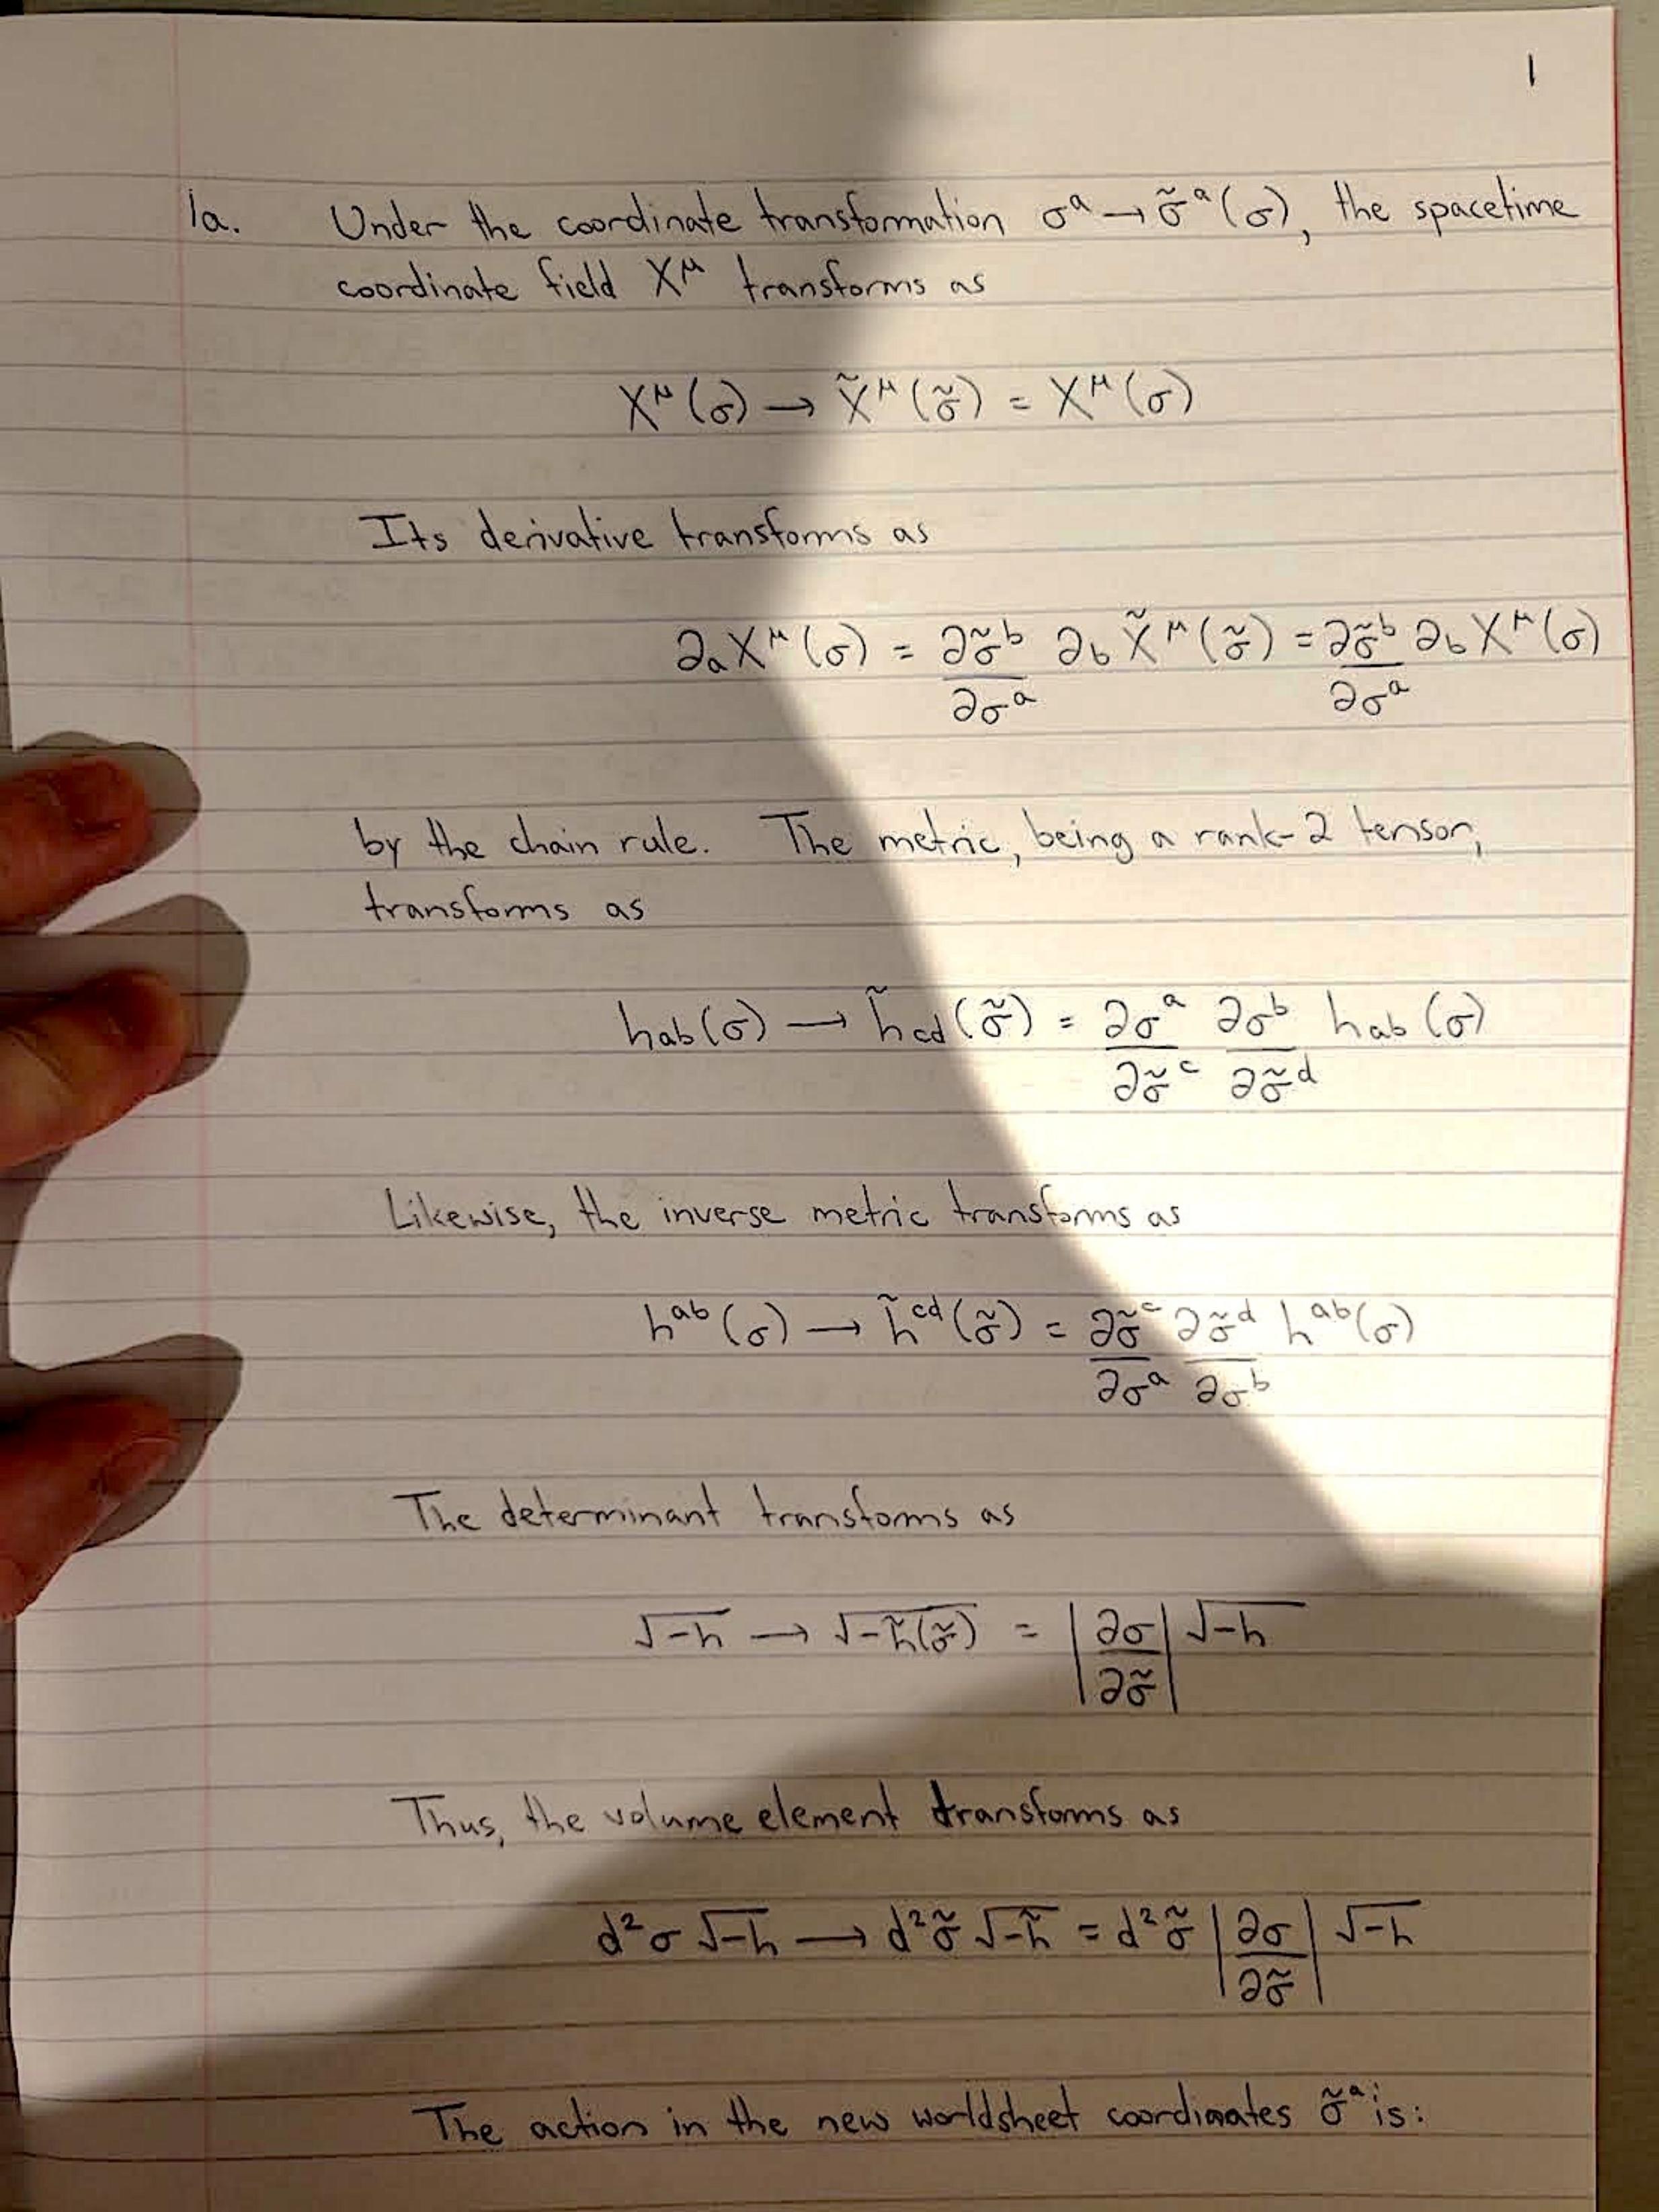 1
1a. Under the coordinate transformation σᵃ → σ̃ᵃ(σ), the spacetime
coordinate field Xᵘ transforms as
Xᵘ(σ) → X̃ᵘ(σ̃) = Xᵘ(σ)
Its derivative transforms as
∂ₐXᵘ(σ) = ∂σ̃ᵇ/∂σᵃ ∂_b X̃ᵘ(σ̃) = ∂σ̃ᵇ/∂σᵃ ∂_b Xᵘ(σ)
by the chain rule. The metric, being a rank-2 tensor,
transforms as
h_ab(σ) → h̃_cd(σ̃) = ∂σᵃ/∂σ̃ᶜ ∂σᵇ/∂σ̃ᵈ h_ab(σ)
Likewise, the inverse metric transforms as
hᵃᵇ(σ) → h̃ᶜᵈ(σ̃) = ∂σ̃ᶜ/∂σᵃ ∂σ̃ᵈ/∂σᵇ hᵃᵇ(σ)
The determinant transforms as
√-h → √-h̃(σ̃) = |∂σ/∂σ̃| √-h
Thus, the volume element transforms as
d²σ √-h → d²σ̃ √-h̃ = d²σ̃ |∂σ/∂σ̃| √-h
The action in the new worldsheet coordinates σ̃ᵃ is: